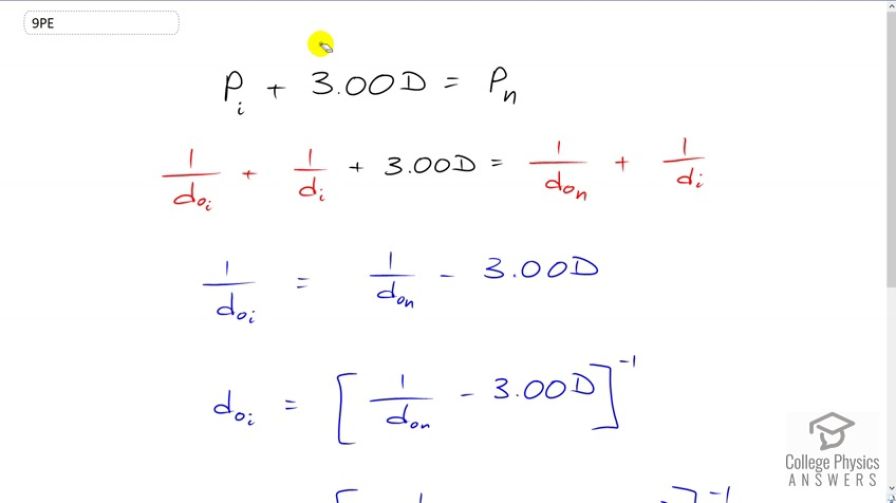 9PE
P_i + 3.00D = P_n
1/d_{o_i} + 1/d_i + 3.00D = 1/d_{o_n} + 1/d_i
1/d_{o_i} = 1/d_{o_n} - 3.00D
d_{o_i} = [1/d_{o_n} - 3.00D]^{-1}
[ 1 ]^{-1}
College Physics
ANSWERS